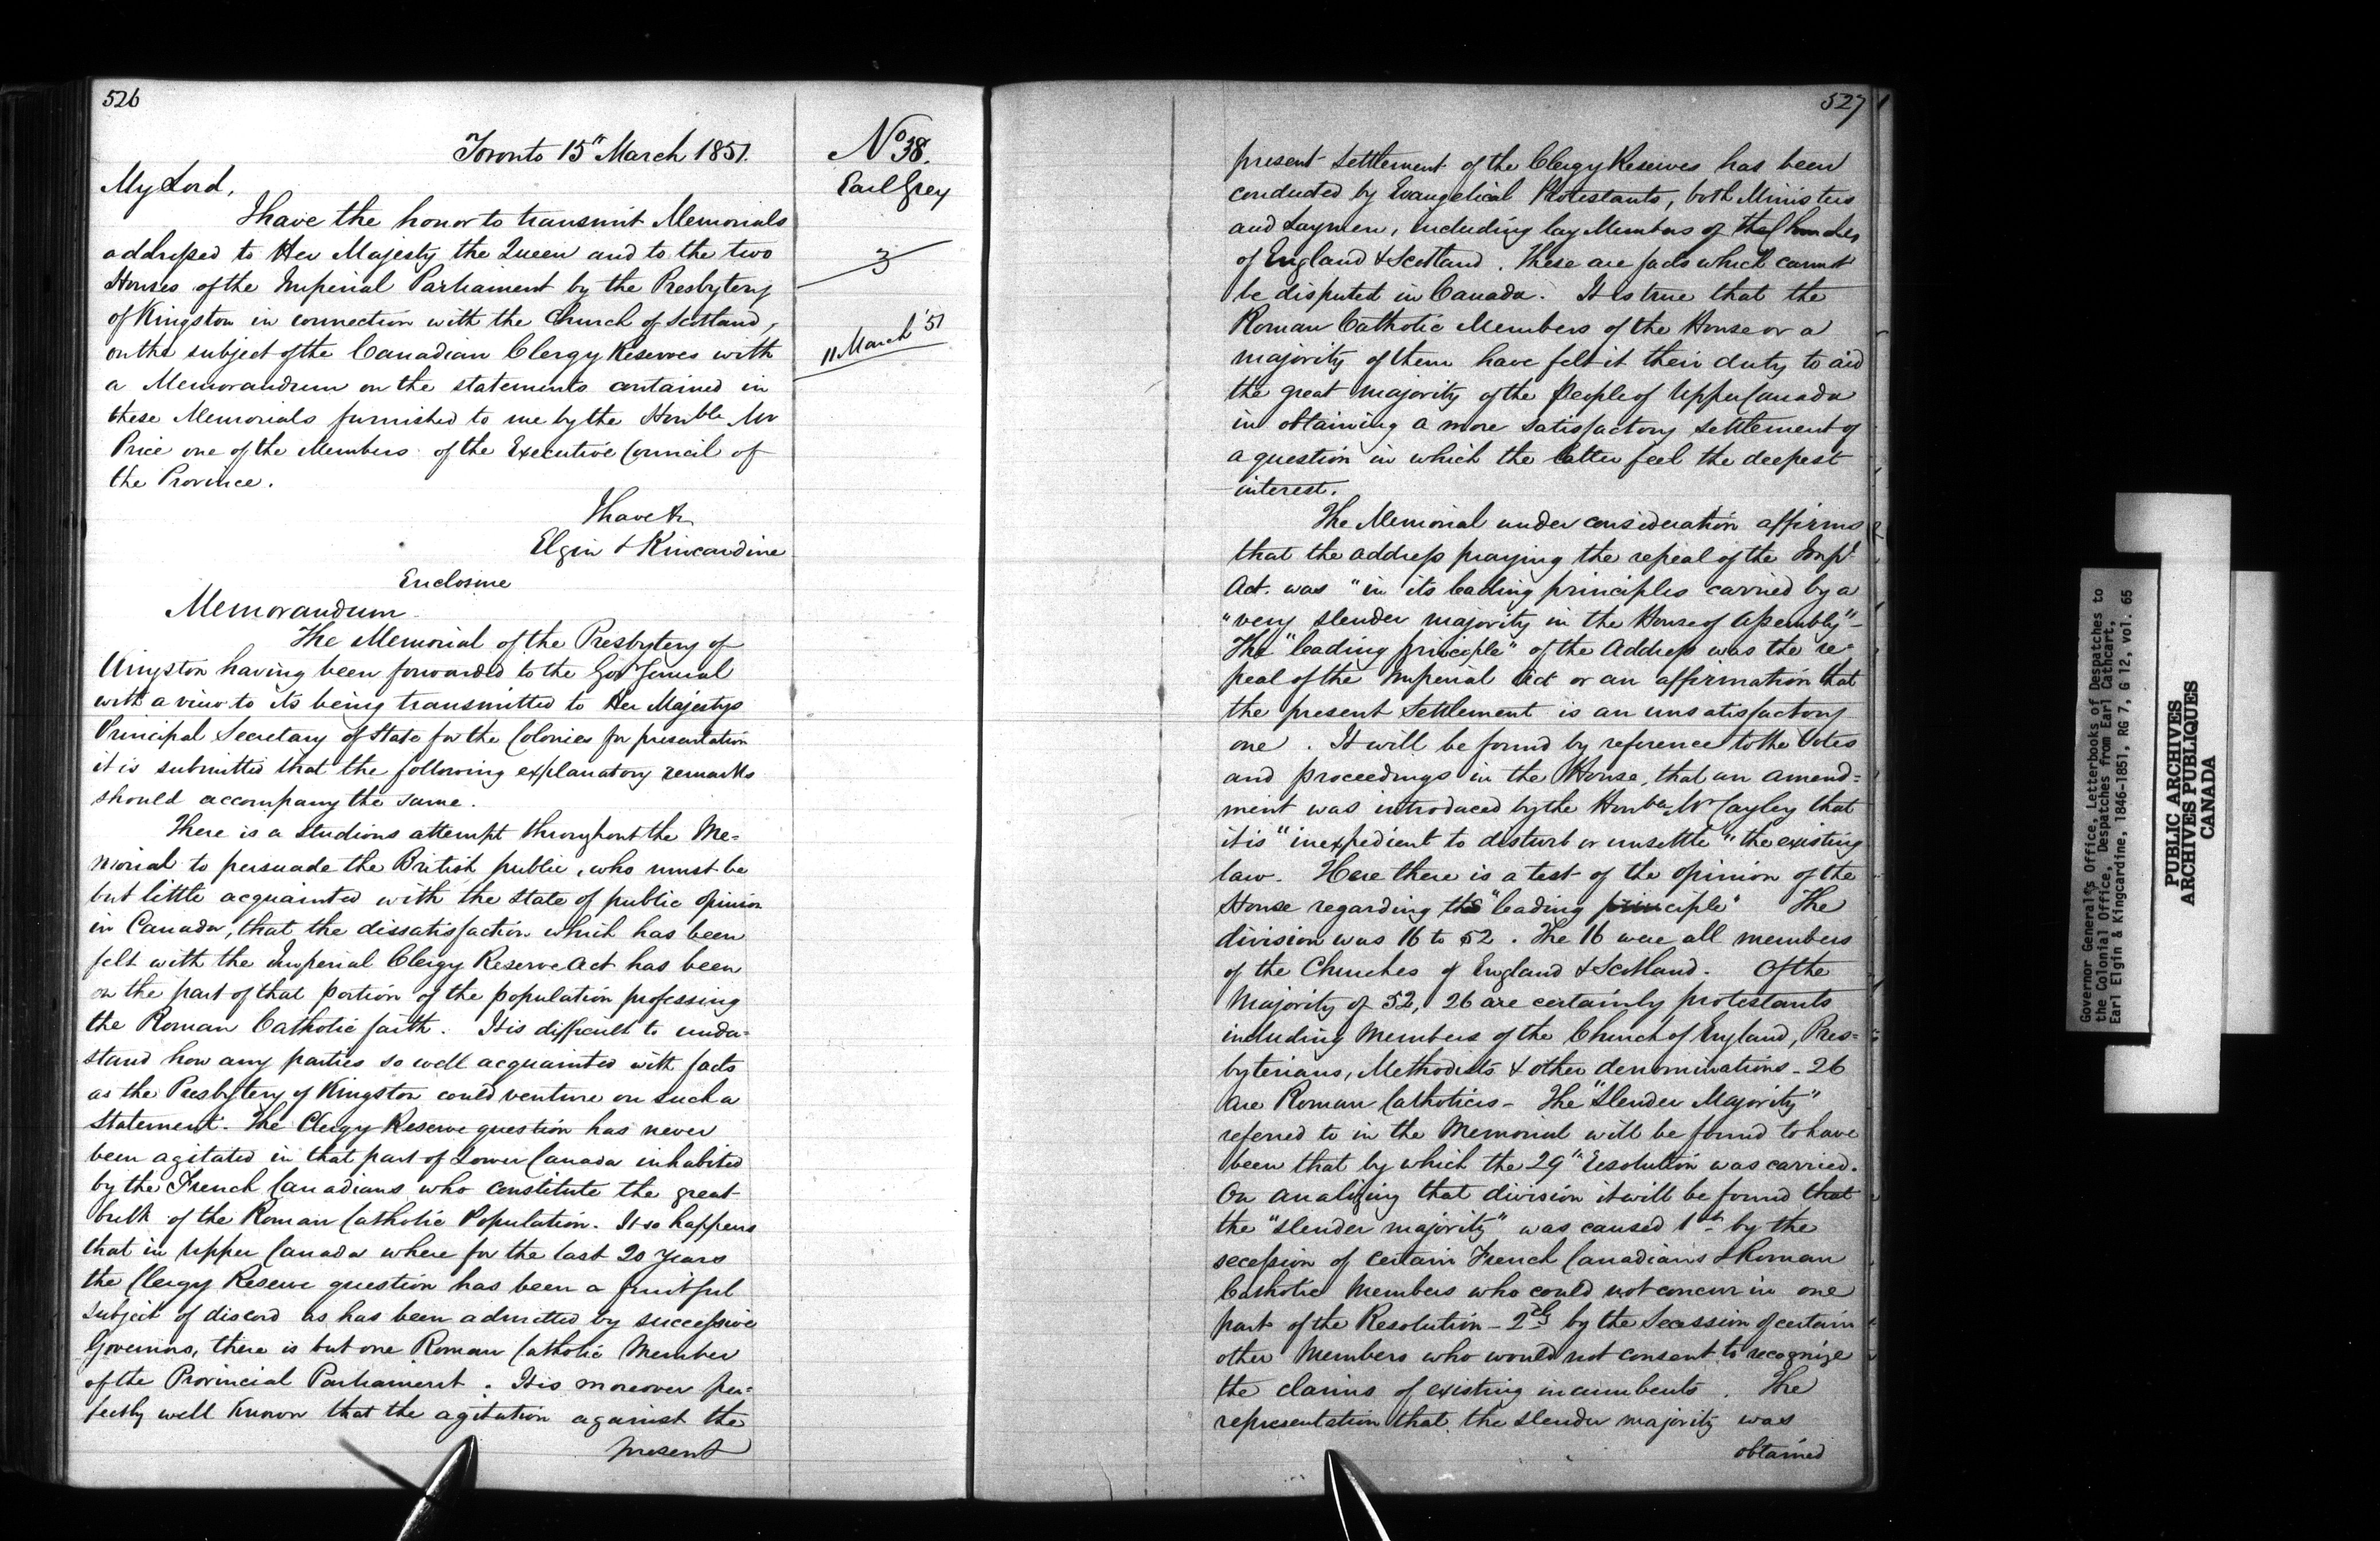 526
Toronto 15" March 1851.
My Lord,
I have the honor to transmit Memorials
addressed to Her Majesty the Queen and to the two
Houses of the Imperial Parliament by the Presbytery
of Kingston in connection with the Church of Scotland,
on the subject of the Canadian Clergy Reserves with
a Memorandum on the statements contained in
these Memorials furnished to me by the Honble Mr
Price one of the Members of the Executive Council of
the Province.
I have &c
Elgin & Kincardine
Enclosure
Memorandum
The Memorial of the Presbytery of
Kingston having been forwarded to the Govr General
with a view to its being transmitted to Her Majestys
Principal Secretary of State for the Colonies for presentation
it is submitted that the following explanatory remarks
should accompany the same.
There is a studious attempt throughout the Me=
morial to persuade the British public, who must be
but little acquainted with the state of public opinion
in Canada, that the dissatisfaction which has been
felt with the Imperial Clergy Reserve Act has been
on the part of that portion of the population professing
the Roman Catholic faith. It is difficult to under=
stand how any parties so well acquainted with facts
as the Presbytery of Kingston could venture on such a
statement. The Clergy Reserve question has never
been agitated in that part of Lower Canada inhabited
by the French Canadians who constitute the great
bulk of the Roman Catholic Population. It so happens
that in Upper Canada where for the last 20 years
the Clergy Reserve question has been a fruitful
subject of discord as has been admitted by successive
Governors, there is but one Roman Catholic Member
of the Provincial Parliament. It is moreover per=
fectly well known that the agitation against the
present
No 38.
Earl Grey
3
11 March '51
527
present settlement of the Clergy Reserves has been
conducted by Evangelical Protestants, both Ministers
and Laymen, including lay Members of the Churches
of England & Scotland. These are facts which cannot
be disputed in Canada. It is true that the
Roman Catholic Members of the House or a
majority of them have felt it their duty to aid
the great majority of the people of Upper Canada
in obtaining a more satisfactory settlement of
a question in which the latter feel the deepest
interest.
The Memorial under consideration affirms
that the address praying the repeal of the Impl
Act. was "in its leading principles carried by a
"very slender majority in the House of Assembly"-
The "leading principle" of the Address was the re=
peal of the Imperial Act or an affirmation that
the present settlement is an unsatisfactory
one. It will be found by reference to the Votes
and proceedings in the House, that an amend=
ment was introduced by the Honble Mr Cayley that
it is "inexpedient to disturb or unsettle" "the existing
law. Here there is a test of the opinion of the
House regarding the "leading principle" The
division was 16 to 52. The 16 were all members
of the Churches of England & Scotland. Of the
Majority of 52, 26 are certainly protestants
including Members of the Church of England, Pres=
byterians, Methodists & other denominations - 26
are Roman Catholics - The "Slender Majority"
referred to in the Memorial will be found to have
been that by which the 29th Resolution was carried.
On analizing that division it will be found that
the "slender majority" was caused 1st by the
secession of certain French Canadians & Roman
Catholic Members who could not concur in one
part of the Resolution - 2dly by the Secession of certain
other Members who would not consent to recognize
the claims of existing incumbents. The
representation that the slender majority was
obtained
Governor General's Office, Letterbooks of Despatches to
the Colonial Office, Despatches from Earl Cathcart,
Earl Elgin & Kingcardine, 1846-1851, RG 7, G 12, vol. 65
PUBLIC ARCHIVES
ARCHIVES PUBLIQUES
CANADA